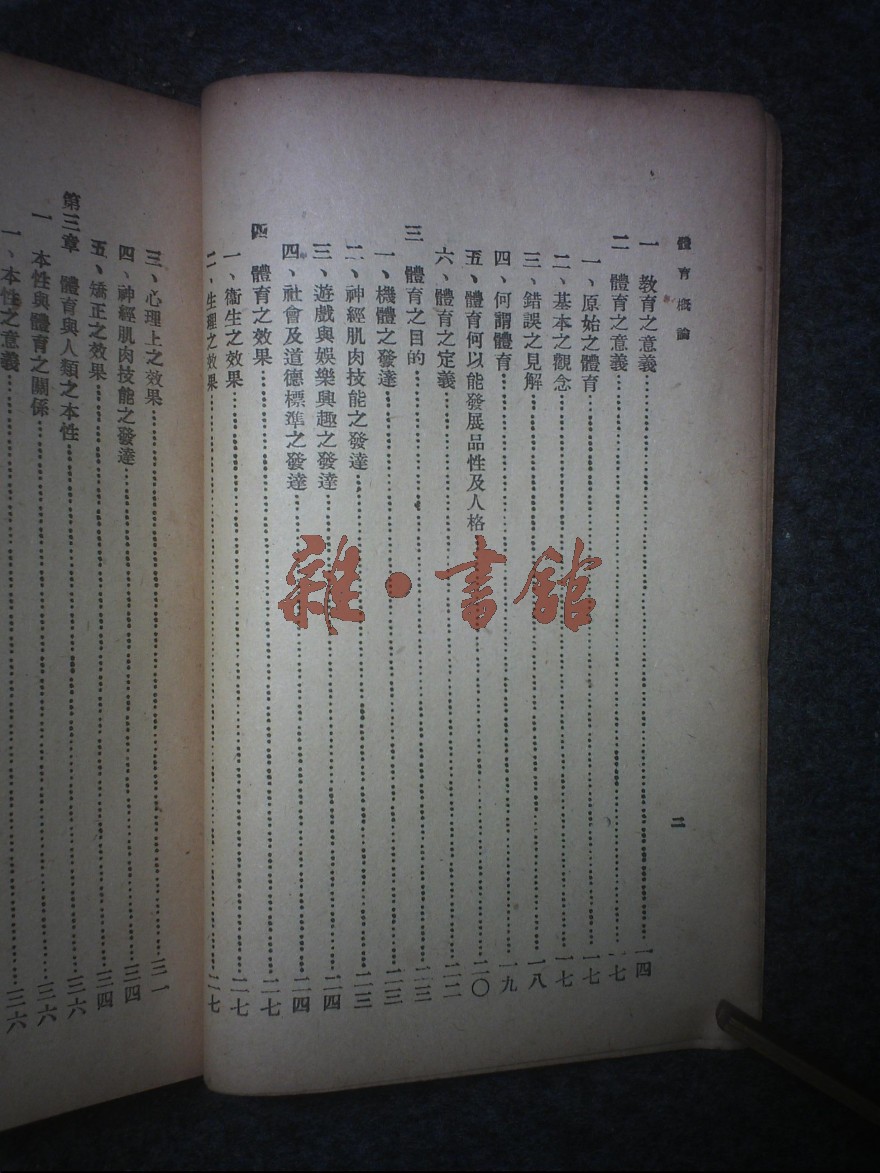 體育概論
二
一 教育之意義⋯⋯一四
二 體育之意義⋯⋯一七
一、原始之體育⋯⋯一七
二、基本之觀念⋯⋯一七
三、錯誤之見解⋯⋯一八
四、何謂體育⋯⋯一九
五、體育何以能發展品性及人格⋯⋯二〇
六、體育之定義⋯⋯二二
三 體育之目的⋯⋯二三
一、機體之發達⋯⋯二三
二、神經肌肉技能之發達⋯⋯二三
三、遊戲與娛樂興趣之發達⋯⋯二四
四、社會及道德標準之發達⋯⋯二四
四 體育之效果⋯⋯二七
一、衞生之效果⋯⋯二七
二、生理之效果⋯⋯二七
三、心理上之效果⋯⋯三一
四、神經肌肉技能之發達⋯⋯三四
五、矯正之效果⋯⋯三四
第三章 體育與人類之本性⋯⋯三六
一 本性與體育之關係⋯⋯三六
一、本性之意義⋯⋯三六
雜·書館